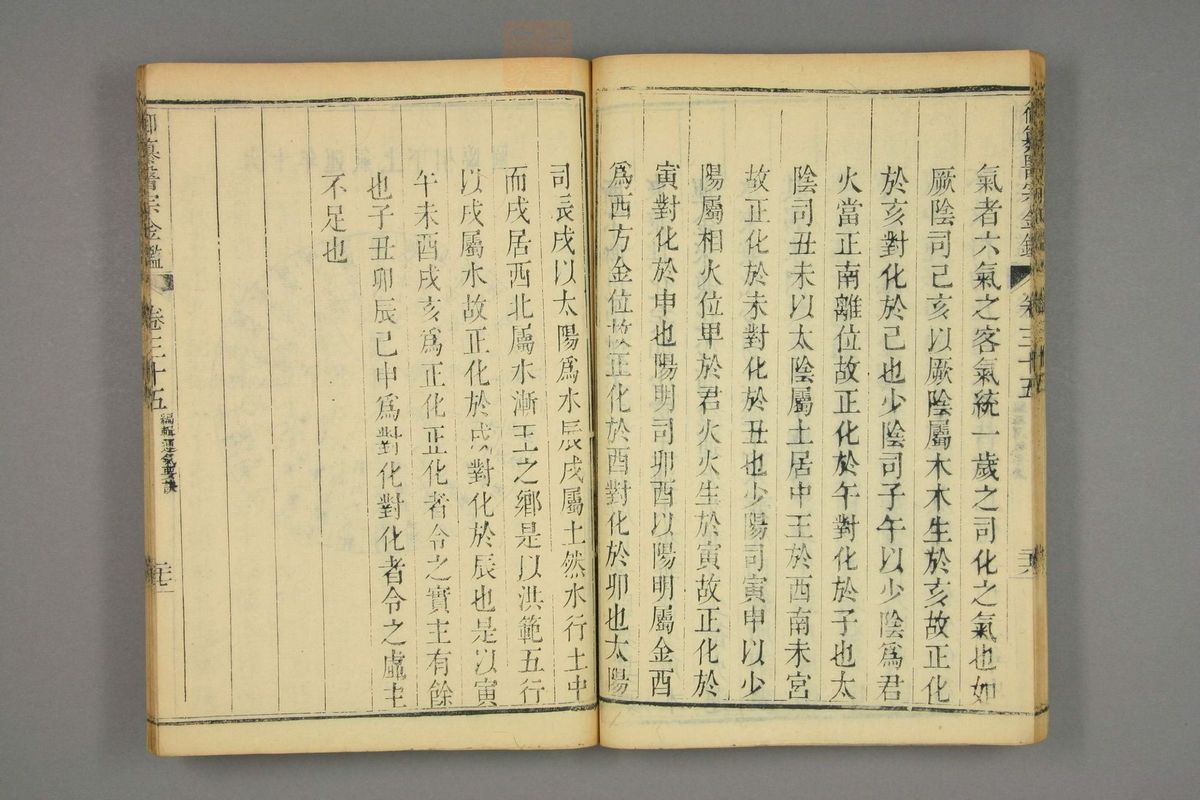 御纂醫宗金鑑
卷三十五
氣者六氣之客氣統一歲之司化之氣也如
厥陰司己亥以厥陰屬木木生於亥故正化
於亥對化於己也少陰司子午以少陰爲君
火當正南離位故正化於午對化於子也太
陰司丑未以太陰屬土居中王於西南未宮
故正化於未對化於丑也少陽司寅申以少
陽屬相火位卑於君火火生於寅故正化於
寅對化於申也陽明司卯酉以陽明屬金酉
爲西方金位故正化於酉對化於卯也太陽
司辰戌以太陽爲水辰戌屬土然水行土中
而戌居西北屬水漸王之鄉是以洪範五行
以戌屬水故正化於戌對化於辰也是以寅
午未酉戌亥爲正化正化者令之實主有餘
也子丑卯辰己申爲對化對化者令之虛主
不足也
御纂醫宗金鑑
卷三十五
編輯運氣要訣